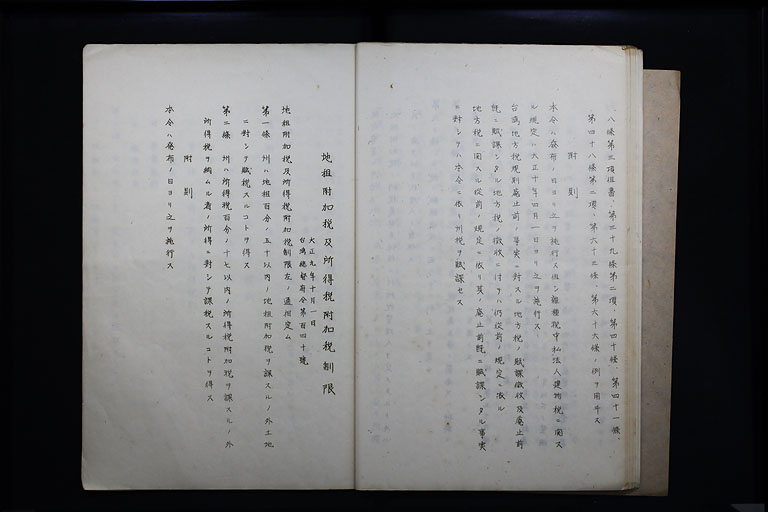 八條第三項但書、第三十九條第二項、第四十條、第四十一條、
第四十八條第二項、第六十三條、第六十六條ノ例ヲ用ヰス
附則
本令ハ發布ノ日ヨリ之ヲ施行ス但シ雜種税中私法人建物税ニ關ス
ル規定ハ大正十年四月一日ヨリ之ヲ施行ス
台灣地方税規則廢止前ノ事實ニ對スル地方税ノ賦課徴收及廢止前
既ニ賦課シタル地方税ノ徴收ニ付テハ仍從前ノ規定ニ依ル
地方税ニ關スル從前ノ規定ニ依リ其ノ廢止前既ニ賦課シタル事實
ニ對シテハ本令ニ依リ州税ヲ賦課セス
地租附加税及所得税附加税制限
大正九年十月一日
台灣總督府令第百四十號
地租附加税及所得税附加税制限左ノ通相定ム
第一條 州ハ地租百分ノ五十以内ノ地租附加税ヲ課スルノ外土地
ニ對シテ賦税スルコトヲ得ス
第二條 州ハ所得税百分ノ十七以内ノ所得税附加税ヲ課スルノ外
所得税ヲ納ムル者ノ所得ニ對シテ課税スルコトヲ得ス
附則
本令ハ發布ノ日ヨリ之ヲ施行ス